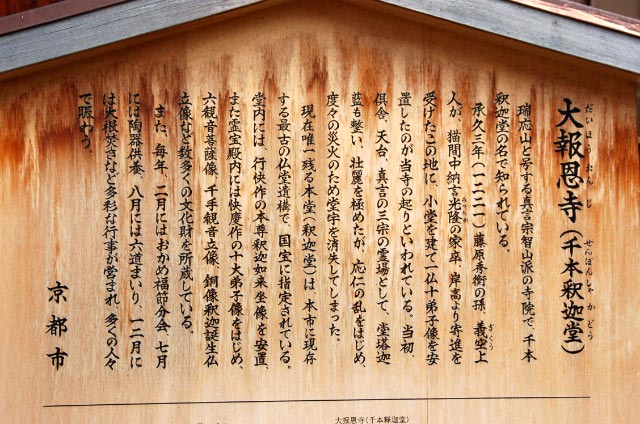 だいほうおんじ
せんぼんしゃかどう
大報恩寺(千本釈迦堂)
瑞応山と号する真言宗智山派の寺院で、千本
釈迦堂の名で知られている。
承久三年(一二二一)藤原秀衡の孫、義空上
ぎくう
人が、猫間中納言光隆の家卒、岸高より寄進を
みつたか
受けたこの地に、小堂を建て一仏十弟子像を安
置したのが当寺の起りといわれている。当初、
倶舎、天台、真言の三宗の霊場として、堂塔伽
藍も整い、壮麗を極めたが、応仁の乱をはじめ、
度々の災火のため堂宇を消失してしまった。
現在唯一残る本堂(釈迦堂)は、本市に現存
する最古の仏堂遺構で、国宝に指定されている。
堂内には、行快作の本尊釈迦如来坐像を安置、
また霊宝殿内には快慶作の十大弟子像をはじめ、
六観音菩薩像、千手観音立像、銅像釈迦誕生仏
立像など数多くの文化財を所蔵している。
また、毎年、二月にはおかめ福節分会、七月
には陶器供養、八月には六道まいり、一二月に
は大根焚きなど多彩な行事が営まれ、多くの人々
で賑わう。
京都市
大報恩寺(千本釈迦堂)